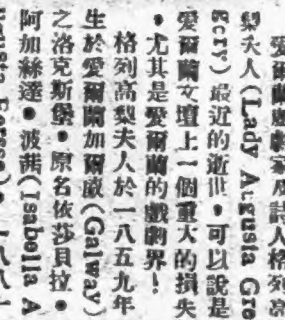 愛爾蘭戲劇家及詩人格列高
梨夫人(Lady Augusta Gre
gory)最近的逝世。可以說是
愛爾蘭文壇上一個重大的損失
。尤其是愛爾蘭的戲劇界!
格列高梨夫人於一八五九年
生於愛爾蘭加爾威(Galway)
之洛克斯堡。原名依莎貝拉。
阿加絲達。波茜(Isabella A